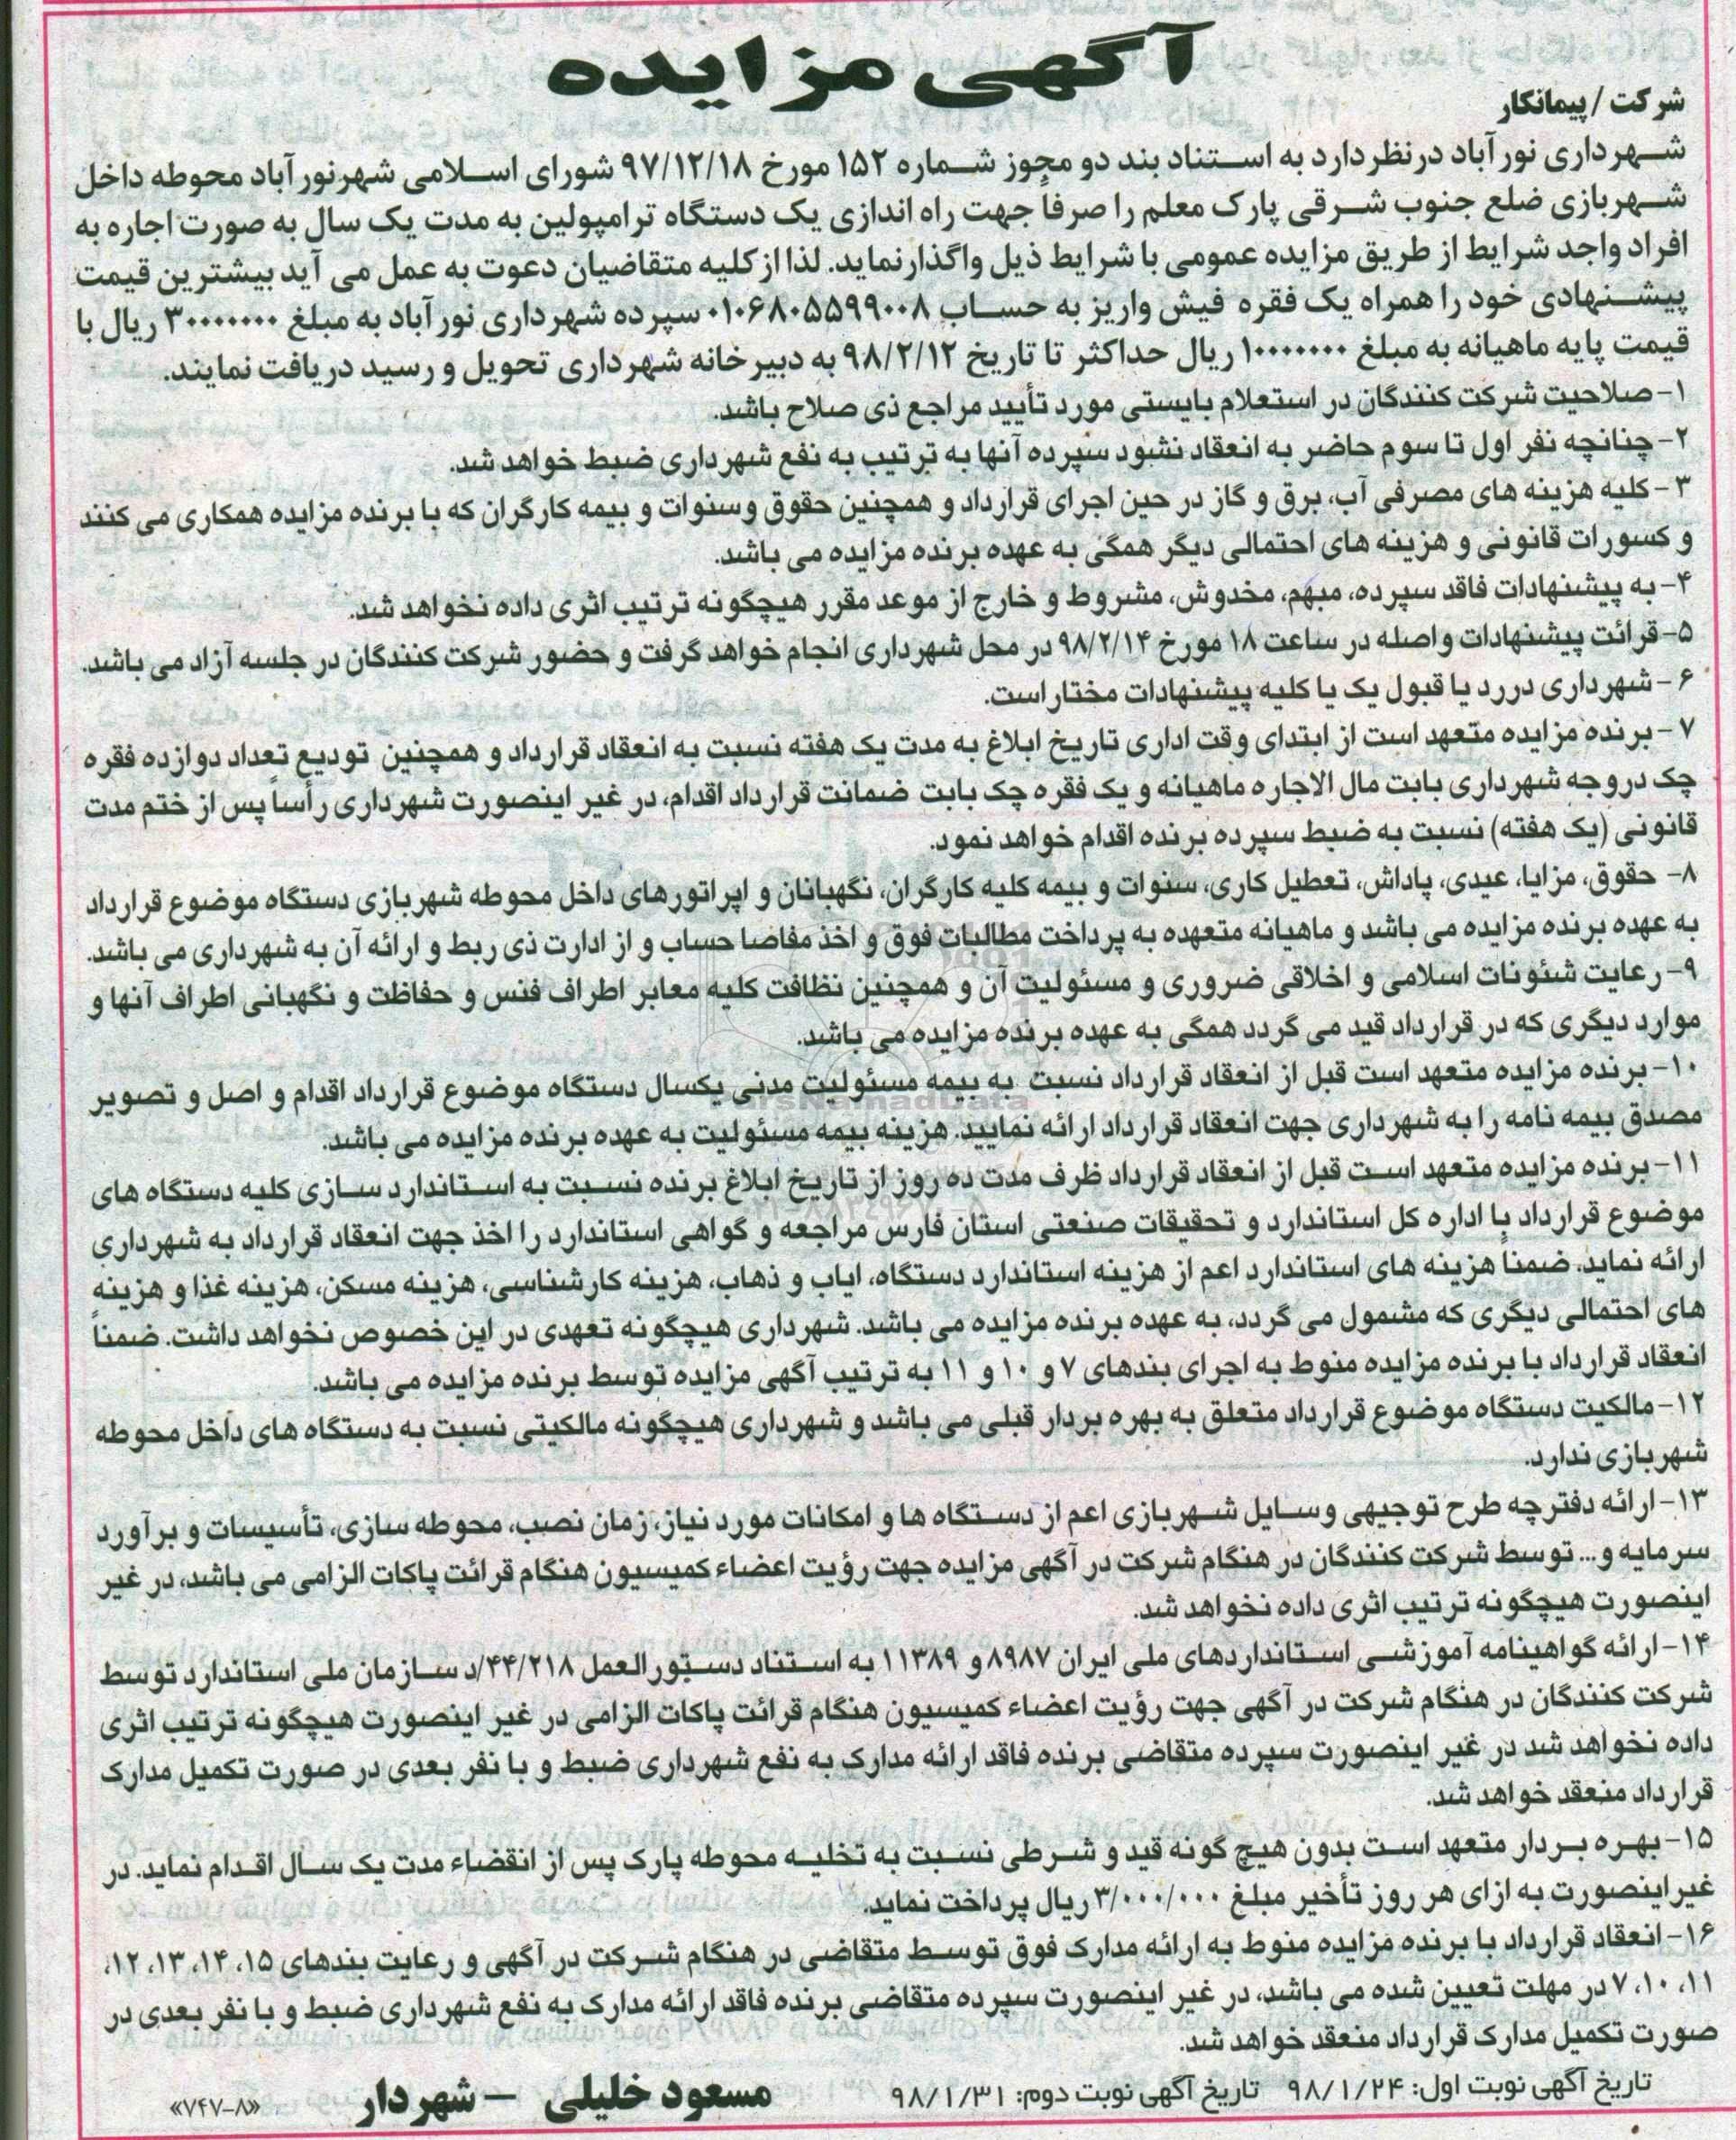 آگهی مزایده
شرکت / پیمانکار
شهرداری نورآباد درنظر دارد به استناد بند دو مجوز شماره ۱۵۲ مورخ ۹۷/۱۲/۱۸ شورای اسلامی شهرنورآباد محوطه داخل
شهربازی ضلع جنوب شرقی پارک معلم را صرفاً جهت راه اندازی یک دستگاه ترامپولین به مدت یک سال به صورت اجاره به
افراد واجد شرایط از طریق مزایده عمومی با شرایط ذیل واگذارنماید. لذا ازکلیه متقاضیان دعوت به عمل می آید بیشترین قیمت
پیشنهادی خود را همراه یک فقره فیش واریز به حساب ۰۱۰۶۸۰۵۵۹۹۰۰۸ سپرده شهرداری نورآباد به مبلغ ۳۰۰۰۰۰۰۰ ریال با
قیمت پایه ماهیانه به مبلغ ۱۰۰۰۰۰۰۰ ریال حداکثر تا تاریخ ۹۸/۲/۱۲ به دبیرخانه شهرداری تحویل و رسید دریافت نمایند.
۱- صلاحیت شرکت کنندگان در استعلام بایستی مورد تأیید مراجع ذی صلاح باشد.
۲- چنانچه نفر اول تا سوم حاضر به انعقاد نشود سپرده آنها به ترتیب به نفع شهرداری ضبط خواهد شد.
۳- کلیه هزینه های مصرفی آب، برق و گاز در حین اجرای قرارداد و همچنین حقوق وسنوات و بیمه کارگران که با برنده مزایده همکاری می کنند
و کسورات قانونی و هزینه های احتمالی دیگر همگی به عهده برنده مزایده می باشد.
۴- به پیشنهادات فاقد سپرده، مبهم، مخدوش، مشروط و خارج از موعد مقرر هیچگونه ترتیب اثری داده نخواهد شد.
۵- قرائت پیشنهادات واصله در ساعت ۱۸ مورخ ۹۸/۲/۱۴ در محل شهرداری انجام خواهد گرفت و حضور شرکت کنندگان در جلسه آزاد می باشد.
۶- شهرداری دررد یا قبول یک یا کلیه پیشنهادات مختار است.
۷- برنده مزایده متعهد است از ابتدای وقت اداری تاریخ ابلاغ به مدت یک هفته نسبت به انعقاد قرارداد و همچنین تودیع تعداد دوازده فقره
چک دروجه شهرداری بابت مال الاجاره ماهیانه و یک فقره چک بابت ضمانت قرارداد اقدام، در غیر اینصورت شهرداری رأساً پس از ختم مدت
قانونی (یک هفته) نسبت به ضبط سپرده برنده اقدام خواهد نمود.
۸- حقوق، مزایا، عیدی، پاداش، تعطیل کاری، سنوات و بیمه کلیه کارگران، نگهبانان و اپراتورهای داخل محوطه شهربازی دستگاه موضوع قرارداد
به عهده برنده مزایده می باشد و ماهیانه متعهده به پرداخت مطالبات فوق و اخذ مفاصا حساب و از ادارت ذی ربط و ارائه آن به شهرداری می باشد.
۹- رعایت شئونات اسلامی و اخلاقی ضروری و مسئولیت آن و همچنین نظافت کلیه معابر اطراف فنس و حفاظت و نگهبانی اطراف آنها و
موارد دیگری که در قرارداد قید می گردد همگی به عهده برنده مزایده می باشد.
۱۰- برنده مزایده متعهد است قبل از انعقاد قرارداد نسبت به بیمه مسئولیت مدنی یکسال دستگاه موضوع قرارداد اقدام و اصل و تصویر
مصدق بیمه نامه را به شهرداری جهت انعقاد قرارداد ارائه نمایید. هزینه بیمه مسئولیت به عهده برنده مزایده می باشد.
۱۱- برنده مزایده متعهد است قبل از انعقاد قرارداد ظرف مدت ده روز از تاریخ ابلاغ برنده نسبت به استاندارد سازی کلیه دستگاه های
موضوع قرارداد با اداره کل استاندارد و تحقیقات صنعتی استان فارس مراجعه و گواهی استاندارد را اخذ جهت انعقاد قرارداد به شهرداری
ارائه نماید. ضمناً هزینه های استاندارد اعم از هزینه استاندارد دستگاه، ایاب و ذهاب، هزینه کارشناسی، هزینه مسکن، هزینه غذا و هزینه
های احتمالی دیگری که مشمول می گردد، به عهده برنده مزایده می باشد. شهرداری هیچگونه تعهدی در این خصوص نخواهد داشت. ضمناً
انعقاد قرارداد با برنده مزایده منوط به اجرای بندهای ۷ و ۱۰ و ۱۱ به ترتیب آگهی مزایده توسط برنده مزایده می باشد.
۱۲- مالکیت دستگاه موضوع قرارداد متعلق به بهره بردار قبلی می باشد و شهرداری هیچگونه مالکیتی نسبت به دستگاه های داخل محوطه
شهربازی ندارد.
۱۳- ارائه دفترچه طرح توجیهی وسایل شهربازی اعم از دستگاه ها و امکانات مورد نیاز، زمان نصب، محوطه سازی، تأسیسات و برآورد
سرمایه و... توسط شرکت کنندگان در هنگام شرکت در آگهی مزایده جهت رؤیت اعضاء کمیسیون هنگام قرائت پاکات الزامی می باشد، در غیر
اینصورت هیچگونه ترتیب اثری داده نخواهد شد.
۱۴- ارائه گواهینامه آموزشی استانداردهای ملی ایران ۸۹۸۷ و ۱۱۳۸۹ به استناد دستورالعمل ۴۴/۲۱۸/د سازمان ملی استاندارد توسط
شرکت کنندگان در هنگام شرکت در آگهی جهت رؤیت اعضاء کمیسیون هنگام قرائت پاکات الزامی در غیر اینصورت هیچگونه ترتیب اثری
داده نخواهد شد در غیر اینصورت سپرده متقاضی برنده فاقد ارائه مدارک به نفع شهرداری ضبط و با نفر بعدی در صورت تکمیل مدارک
قرارداد منعقد خواهد شد.
۱۵- بهره بردار متعهد است بدون هیچ گونه قید و شرطی نسبت به تخلیه محوطه پارک پس از انقضاء مدت یک سال اقدام نماید. در
غیراینصورت به ازای هر روز تأخیر مبلغ ۳/۰۰۰/۰۰۰ ریال پرداخت نماید.
۱۶- انعقاد قرارداد با برنده مزایده منوط به ارائه مدارک فوق توسط متقاضی در هنگام شرکت در آگهی و رعایت بندهای ۱۵، ۱۴، ۱۳، ۱۲،
۱۱، ۱۰، ۷ در مهلت تعیین شده می باشد، در غیر اینصورت سپرده متقاضی برنده فاقد ارائه مدارک به نفع شهرداری ضبط و با نفر بعدی در
صورت تکمیل مدارک قرارداد منعقد خواهد شد.
تاریخ آگهی نوبت اول: ۹۸/۱/۲۴ تاریخ آگهی نوبت دوم: ۹۸/۱/۳۱ مسعود خلیلی – شهردار «۷۴۷-۸»